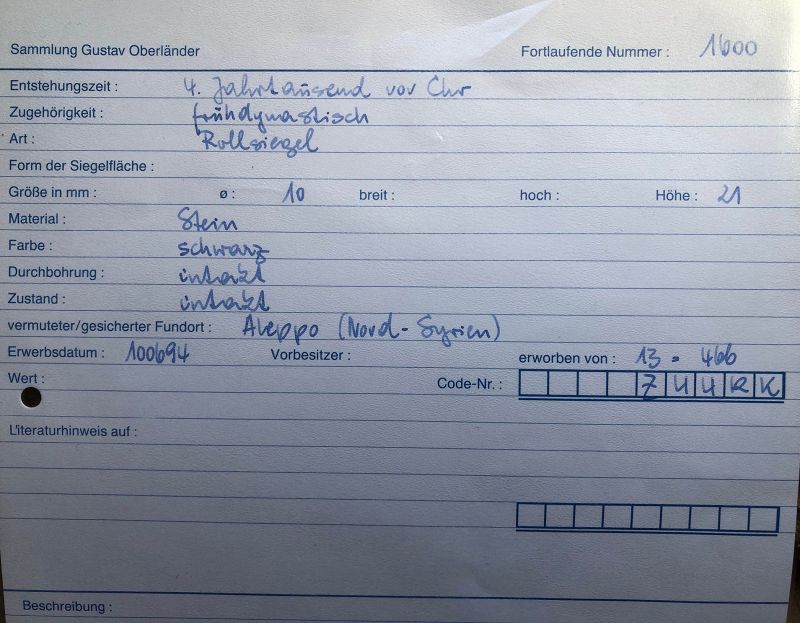 Sammlung Gustav Oberländer Fortlaufende Nummer : 1600
Entstehungszeit : 4. Jahrtausend vor Chr
Zugehörigkeit : frühdynastisch
Art : Rollsiegel
Form der Siegelfläche :
Größe in mm : ø : 10 breit : hoch : Höhe : 21
Material : Stein
Farbe : schwarz
Durchbohrung : intakt
Zustand : intakt
vermuteter/gesicherter Fundort : Aleppo (Nord-Syrien)
Erwerbsdatum : 100694 Vorbesitzer : erworben von : 13 = 466
Wert : Code-Nr. : Z U U R K
Literaturhinweis auf :
Beschreibung :